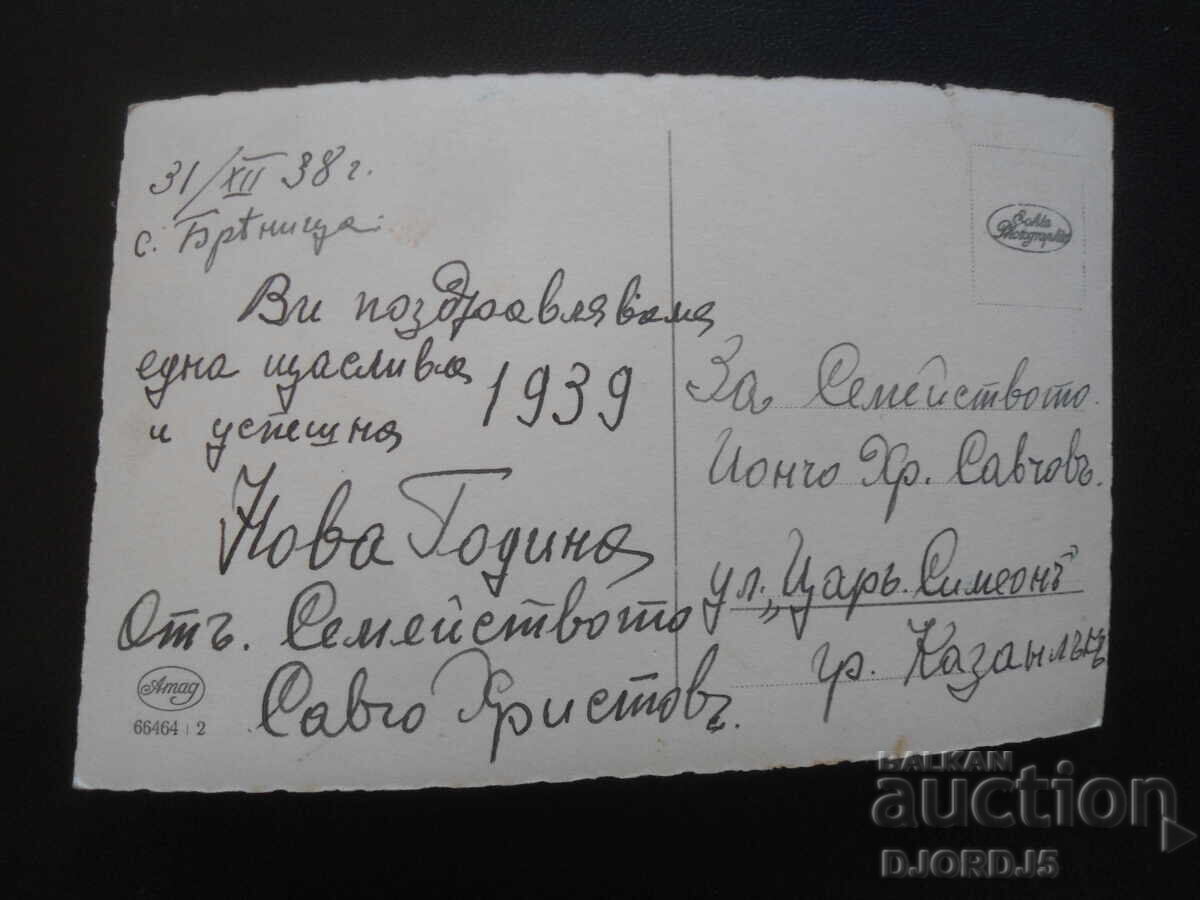 31/XII 38 г.
с. Брѣница.
Ви поздравлявама
една щаслива
и успешна 1939
Нова Година
Отъ. Семейството
Савчо Христовъ.
Amag
66464 2
Echte
Photographie
За Семейството.
Йончо Хр. Савчовъ.
ул. „Царь. Симеонъ"
гр. Казанлъкъ
BALKAN
auction
DJORDJ5